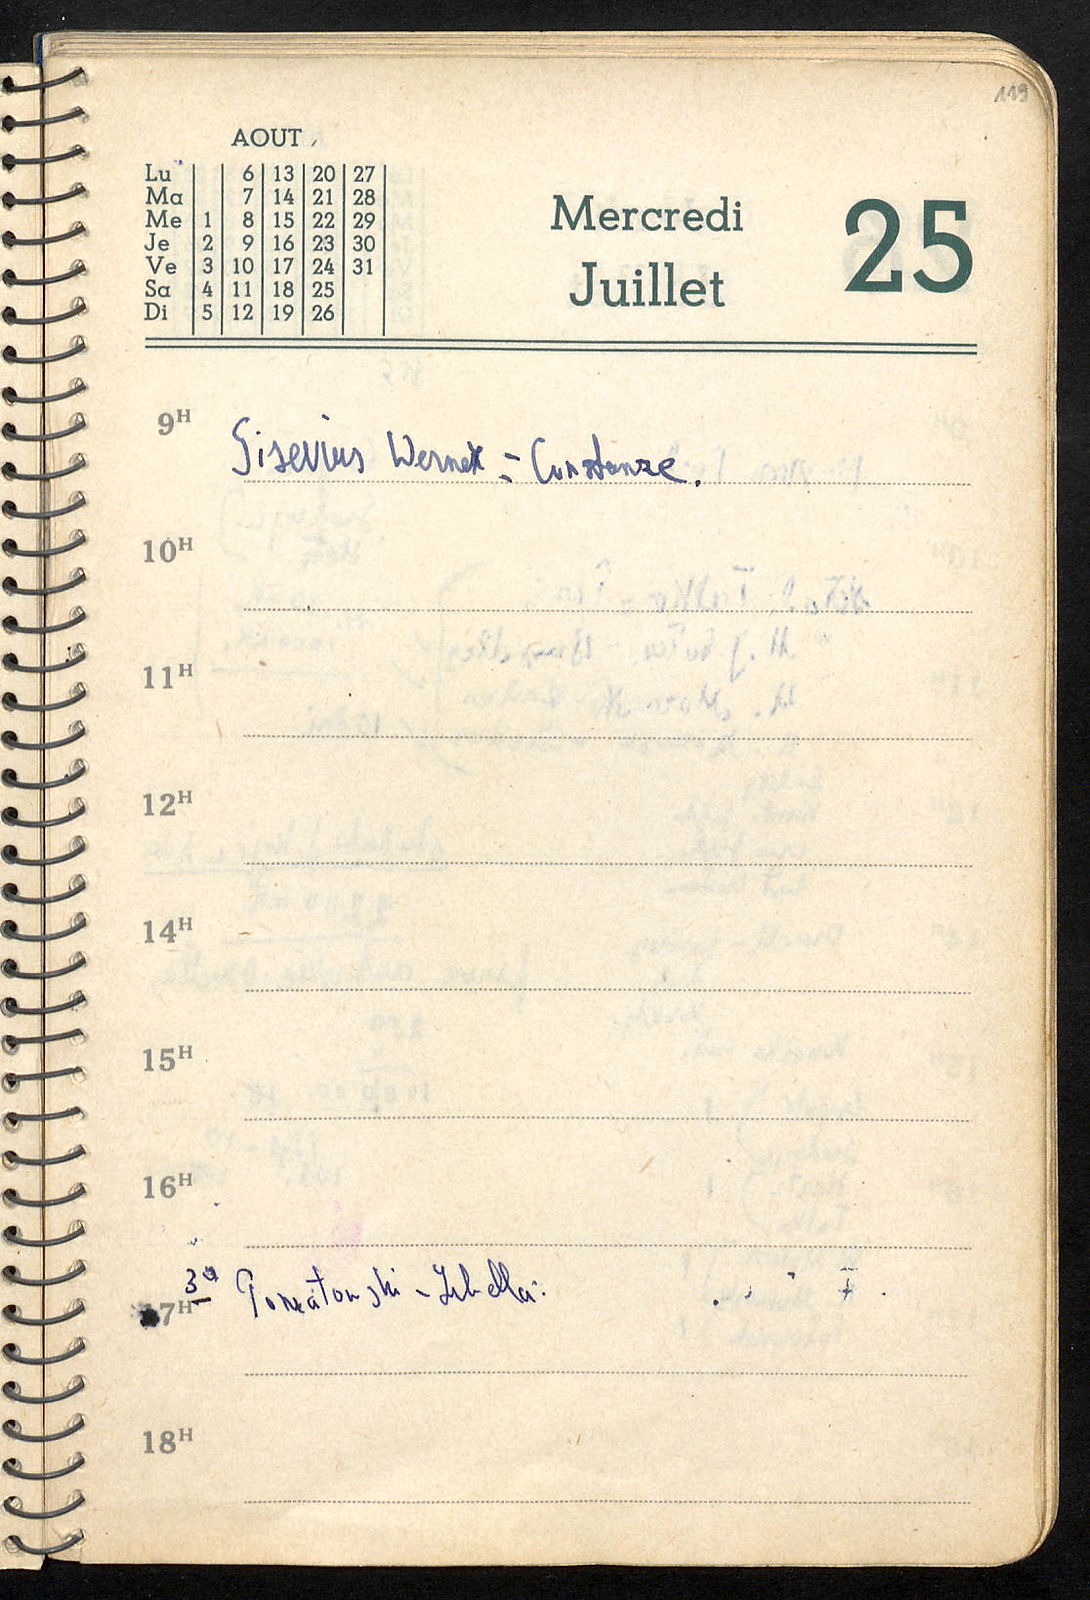 119
AOUT
Lu 6 13 20 27
Ma 7 14 21 28
Me 1 8 15 22 29
Je 2 9 16 23 30
Ve 3 10 17 24 31
Sa 4 11 18 25
Di 5 12 19 26
Mercredi 25
Juillet
9H
Gisevius Werner = Constanze.
10H
11H
12H
14H
15H
16H
3a Poniatowski - Isbella:
17H
18H